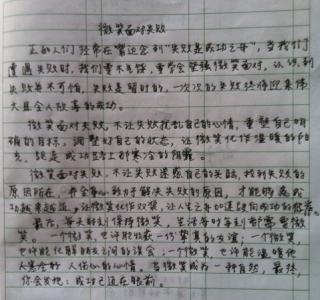 微笑面对失败
正如人们经常在嘴边念到"失败是成功之母"，当我们
遭遇失败时，我们要不气馁，要学会坚强微笑面对，认识到
失败并不可怕，失败是暂时的，一次次的失败终将迎来伟
大且令人欣喜的成功。
微笑面对失败，不让失败扰乱自己的心情，重整自己明
确的目标，调整好自己的状态，让微笑化作温暖的阳
光，驱走成功路上那寒冷的阴霾。
微笑面对失败，不让失败迷惑自己的头脑，找到失败的
原因所在，并全身心致力于解决失败的原因，才能够离成
功越来越近，让微笑化作双桨，让人生之舟加速驶向成功的彼岸。
最后，每天时刻保持微笑，生活每时每刻都需要微
笑。一个微笑，也许能收获一份挚真的友谊；一个微笑，
也许能化解朋友之间的误会；一个微笑，也许能温暖他
人寒冷的心情。当微笑成为一种自然，蓦然，
你会发现：成功已近在眼前。